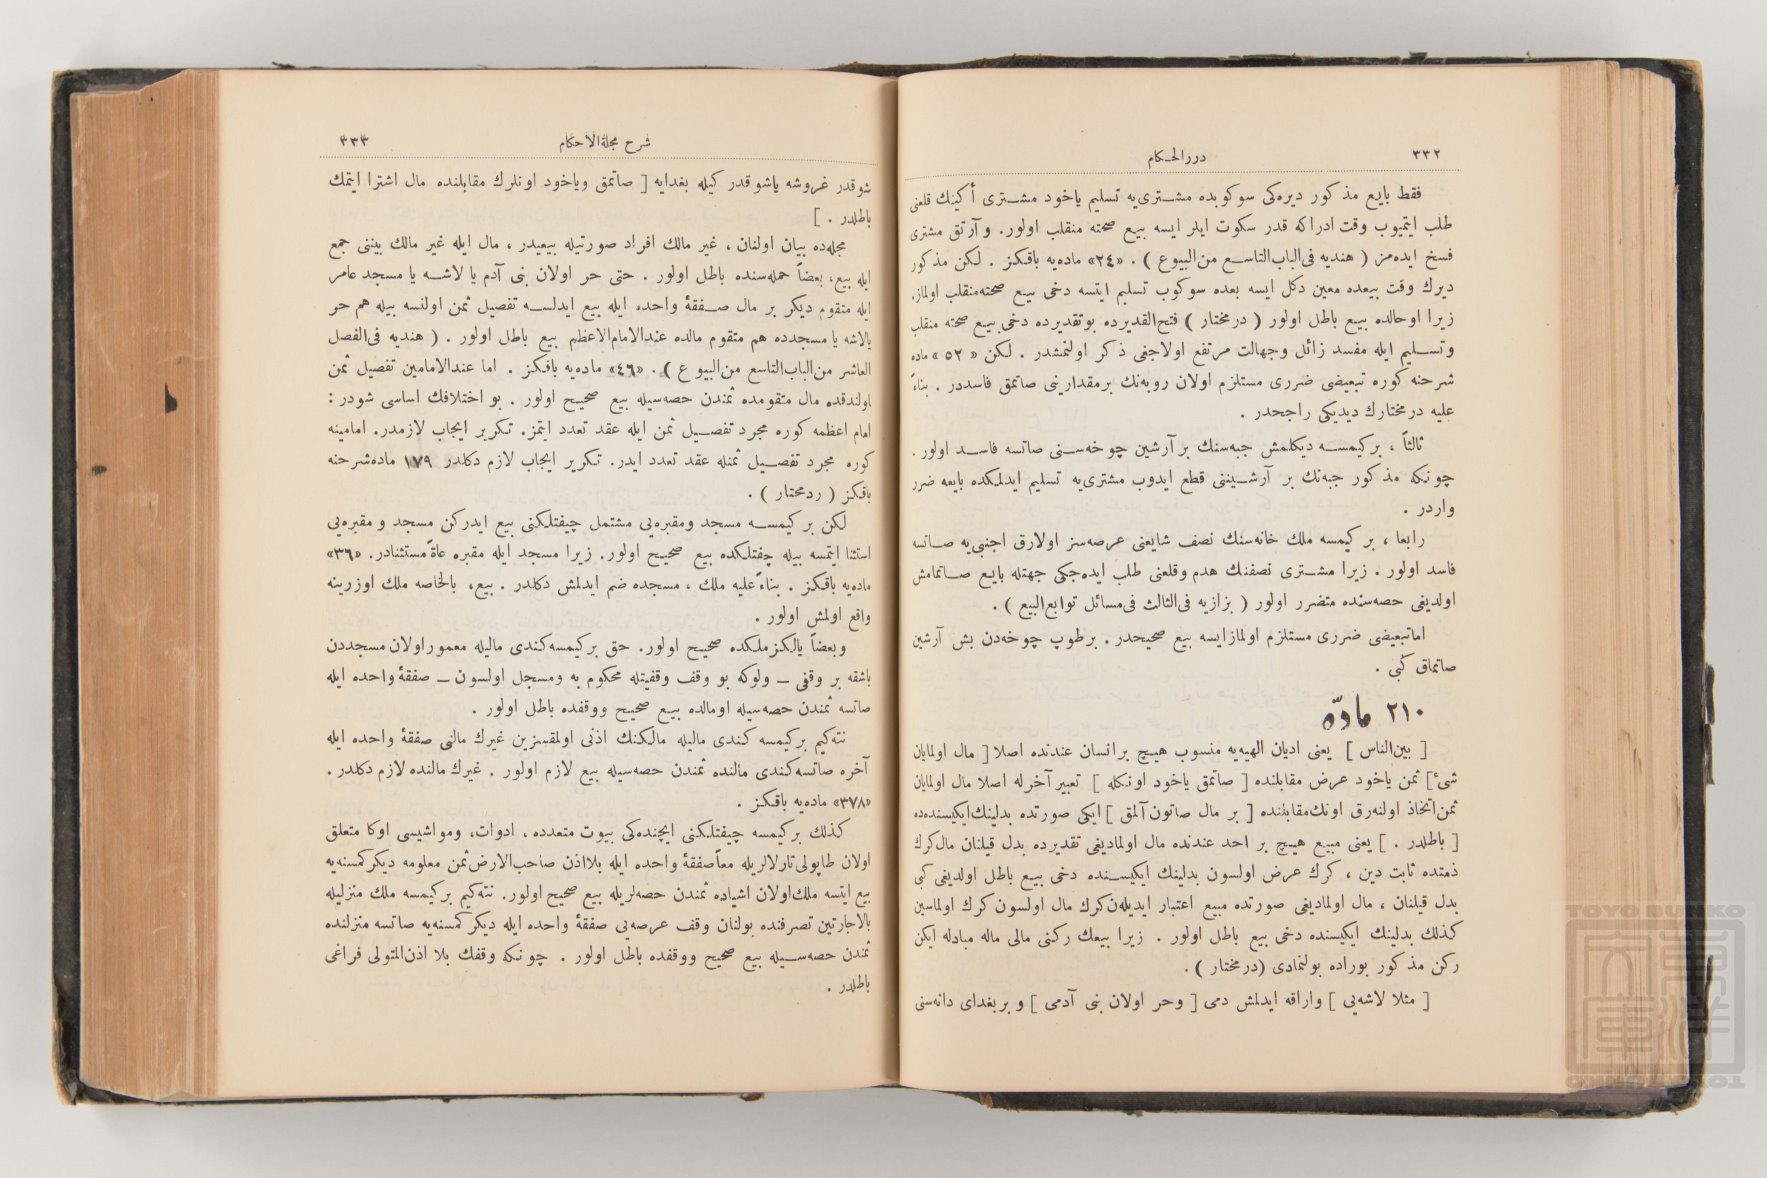 ٣٣٢
دررالحـكام
فقط بايع مذكور ديره‌كى سوكوبده مشـترى‌يه تسليم ياخود مشـترى أكينك قلعنى
طلب ايتميوب وقت ادراكه قدر سكوت ايلر ايسه بيع صحته منقلب اولور. وآرتق مشترى
فسخ ايده‌مز ( هنديه فى‌الباب‌التاسـع من‌البيوع ) . «٢٤» ماده‌يه باقـكز . لـكن مذكور
ديرك وقت بيعده معين دكل ايسه بعده سوكوب تسليم ايتسه دخى بيـع صحته‌منقلب اولماز.
زيرا اوحالده بيـع باطل اولور ( درمختار ) فتح‌القديرده بوتقديرده دخى بيـع صحته منقلب
وتسـليم ايله مفسد زائل وجهالت مرتفع اولاجغى ذكر اولنمشدر . لـكن « ٥٢ » ماده
شرحنه كوره تبعيضى ضررى مستلزم اولان روبه‌نك برمقدارينى صاتمق فاسددر . بناءً
عليه درمختارك ديديكى راجحدر .
ثالثاً ، بركيمسـه ديكلمش جبه‌سنك بر آرشين چوخه‌سـنى صاتسه فاسـد اولور .
چونكه مذكور جبه‌نك بر آرشـيننى قطع ايدوب مشترى‌يه تسليم ايدلمكده بايعه ضرر
واردر .
رابعا ، بر كيمسه ملك خانه‌سنك نصف شايعنى عرصه‌سز اولارق اجنبى‌يه صـاتسه
فاسد اولور . زيرا مشـترى نصفنك هدم وقلعنى طلب ايده‌جكى جهتله بايع صـاتمامش
اولديغى حصه‌سنده متضرر اولور ( بزازيه فى‌الثالث فى‌مسائل توابع‌البيع ) .
اماتبعيضى ضررى مستلزم اولمازايسه بيع صحيحدر . برطوپ چوخه‌دن بش آرشين
صاتماق كبى .
٢١٠ مادّه
[ بين‌الناس ] يعنى اديان الهيه‌يه منسوب هيـچ برانسان عندنده اصلا [ مال اولمايان
شىئ ] ثمن ياخود عرض مقابلنده [ صاتمق ياخود اونكله ] تعبير آخرله اصلا مال اولمايان
ثمن‌اتخاذ اولنه‌رق اونك‌مقابلنده [ بر مال صاتون‌آلمق ] ايكى صورتده بدلينك‌ايكيسنده‌ده
[ باطلدر . ] يعنى مبيع هيـچ بر احد عندنده مال اولماديغى تقديرده بدل قيلنان مال‌كرك
ذمتده ثابت دين ، كرك عرض اولسون بدلينك ايكيسـنده دخى بيـع باطل اولديغى كبى
بدل قيلنان ، مال اولماديغى صورتده مبيع اعتبار ايديله‌ن‌كرك مال اولسون كرك اولماسين
كذلك بدلينك ايكيسنده دخى بيع باطل اولور . زيرا بيعك ركنى مالى ماله مبادله ايكن
ركن مذكور بوراده بولنمادى (درمختار ) .
[ مثلا لاشه‌يى ] واراقه ايدلمش دمى [ وحر اولان بنى آدمى ] و بر بغداى دانه‌سنى
شرح مجلةالاحكام
٣٣٣
شوقدر غروشه ياشوقدر كيله بغدايه [ صاتمق وياخود اونلرك مقابلنده مال اشترا ايتمك
باطلدر . ]
مجله‌ده بيان اولنان ، غير مالك افراد صورتيله بيعيدر ، مال ايله غير مالك بيننى جمع
ايله بيع، بعضاً جمله‌سنده باطل اولور . حتى حر اولان بنى آدم يا لاشـه يا مسجد عامر
ايله متقوم ديكر بر مال صـفقهٔ واحده ايله بيع ايدلسـه تفصيل ثمن اولنسه بيله هم حر
يالاشه يا مسجدده هم متقوم مالده عندالامام‌الاعظم بيع باطل اولور . ( هنديه فى‌الفصل
العاشر من‌الباب‌التاسع من‌البيوع ) . «٤٦» ماده‌يه باقـكز . اما عندالامامين تفصيل ثمن
اولندقده مال متقومده ثمندن حصه‌سيله بيع صحيـح اولور . بو اختلافك اساسى شودر :
امام اعظمه كوره مجرد تفصـيل ثمن ايله عقد تعدد ايتمز. تـكرير ايجاب لازمدر. امامينه
كوره مجرد تفصـيل ثمنله عقد تعدد ايدر. تـكرير ايجاب لازم دكلدر ١٧٩ ماده‌شرحنه
باقكز ( ردمحتار ) .
لكن بر كيمسـه مسجد ومقبره‌يى مشتمل چيفتلكنى بيع ايدركن مسجد و مقبره‌يى
استثنا ايتمسه بيله چفتلكده بيع صحيـح اولور. زيرا مسجد ايله مقبره عادةً مستثنادر. «٣٦»
ماده‌يه باقكز . بناءً عليه ملك ، مسجده ضم ايدلمش دكلدر . بيع، بالخاصه ملك اوزرينه
واقع اولمش اولور .
وبعضاً يالكزملكده صحيـح اولور. حتى بركيمسه‌كندى ماليله معموراولان مسجددن
باشقه بر وقفى ـ ولوكه بو وقف وقفيتله محكوم به ومسجل اولسون ـ صفقهٔ واحده ايله
صاتسه ثمندن حصه‌سيله اومالده بيـع صحيـح ووقفده باطل اولور .
نته‌كيم بركيمسه كندى ماليله مالكنك اذنى اولمقسزين غيرك مالنى صفقهٔ واحده ايله
آخره صاتسه‌كندى مالنده ثمندن حصه‌سيله بيع لازم اولور . غيرك مالنده لازم دكلدر .
«٣٧٨» ماده‌يه باقـكز .
كذلك بركيمسه چيفتلكنى ايچنده‌كى بيوت متعدده ، ادوات، ومواشيسى اوكا متعلق
اولان طاپولى‌تارلالريله معاًصفقهٔ واحده ايله بلااذن صاحب‌الارض‌ثمن معلومه ديكركمسنه‌يه
بيع ايتسه ملك‌اولان اشياده ثمندن حصه‌لريله بيع صحيح‌اولور. نته‌كيم بركيمسه ملك منزليله
بالاجارتين تصرفنده بولنان وقف عرصه‌يى صفقهٔ واحده ايله ديكر كمسنه‌يه صاتسه منزلنده
ثمندن حصه‌سـيله بيع صحيح ووقفده باطل اولور . چونكه وقفك بلا اذن‌المتولى فراغى
باطلدر .
TOYO BUNKO